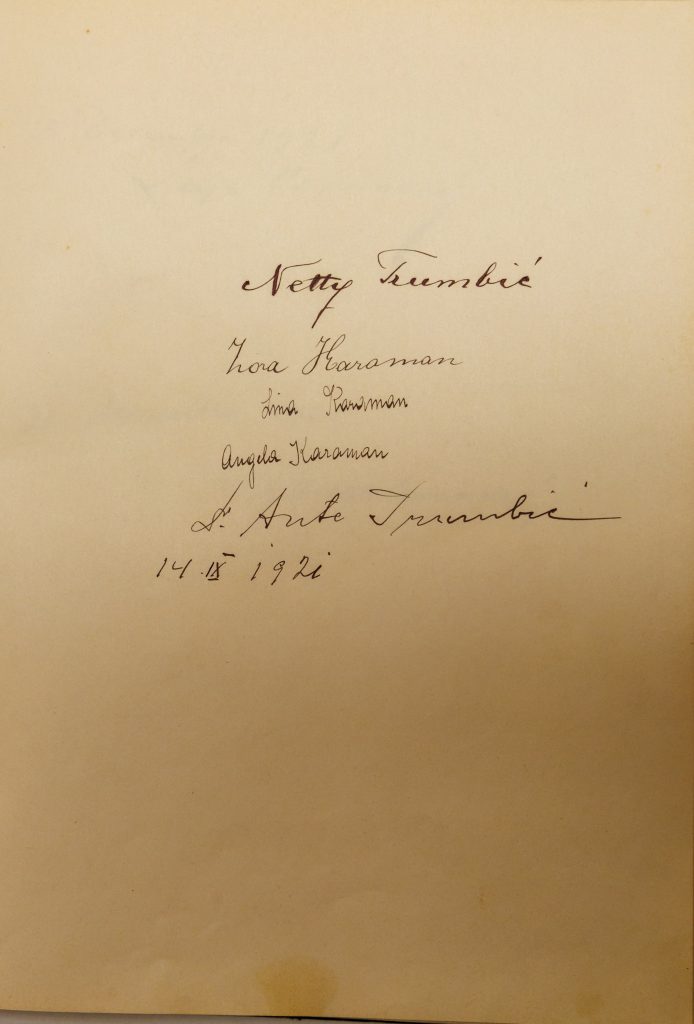 Netty Trumbić
Zora Karaman
Lina Karaman
Angela Karaman
Dr. Ante Trumbić
14 IX 1921